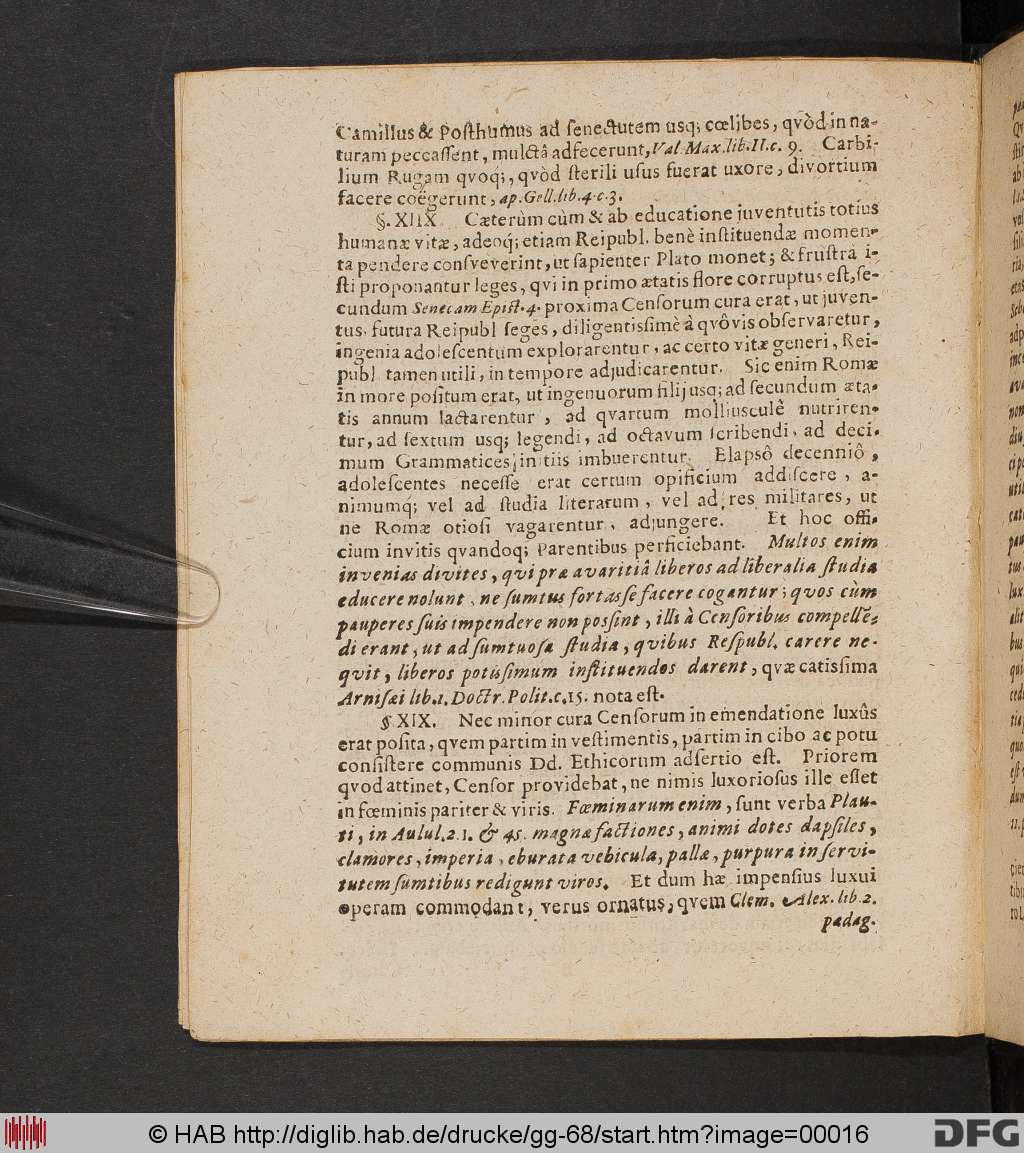 Camillus & Posthumus ad senectutem usq; cœlibes, qvòd in na-
turam peccassent, mulctâ adfecerunt, Val. Max. lib. II. c. 9. Carbi-
lium Rugam qvoq;, qvòd sterili usus fuerat uxore, divortium
facere coëgerunt, ap. Gell. lib. 4. c. 3.
§. XIIX. Cæterùm cùm & ab educatione juventutis totius
humanæ vitæ, adeoq; etiam Reipubl. benè instituendæ momen-
ta pendere consveverint, ut sapienter Plato monet; & frustrà i-
sti proponantur leges, qvi in primo ætatis flore corruptus est, se-
cundum Senecam Epist. 4. proxima Censorum cura erat, ut juven-
tus, futura Reipubl seges, diligentissimè à qvôvis observaretur,
ingenia adolescentum explorarentur, ac certo vitæ generi, Rei-
publ tamen utili, in tempore adjudicarentur. Sic enim Romæ
in more positum erat, ut ingenuorum filij usq; ad secundum æta-
tis annum lactarentur, ad qvartum molliusculè nutriren-
tur, ad sextum usq; legendi, ad octavum scribendi, ad deci-
mum Grammatices initiis imbuerentur. Elapsô decenniô,
adolescentes necesse erat certum opificium addiscere, a-
nimumq; vel ad studia literarum, vel ad res militares, ut
ne Romæ otiosi vagarentur, adjungere. Et hoc offi-
cium invitis qvandoq; Parentibus perficiebant. Multos enim
invenias divites, qvi præ avaritiâ liberos ad liberalia studia
educere nolunt, ne sumtus fortasse facere cogantur; qvos cùm
pauperes suis impendere non possint, illi à Censoribus compellē-
di erant, ut ad sumtuosa studia, qvibus Respubl. carere ne-
qvit, liberos potissimum instituendos darent, qvæ catissima
Arnisæi lib. 1. Doctr. Polit. c. 15. nota est.
§ XIX. Nec minor cura Censorum in emendatione luxûs
erat posita, qvem partim in vestimentis, partim in cibo ac potu
consistere communis Dd. Ethicorum adsertio est. Priorem
qvod attinet, Censor providebat, ne nimis luxoriosus ille esset
in fœminis pariter & viris. Fœminarum enim, sunt verba Plau-
ti, in Aulul. 2. 1. & 45. magnæ factiones, animi dotes dapsiles,
clamores, imperia, eburata vehicula, pallæ, purpura in servi-
tutem sumtibus redigunt viros. Et dum hæ impensius luxui
operam commodant, verus ornatus, qvem Clem. Alex. lib 2.
pædag.
© HAB http://diglib.hab.de/drucke/gg-68/start.htm?image=00016
DFG